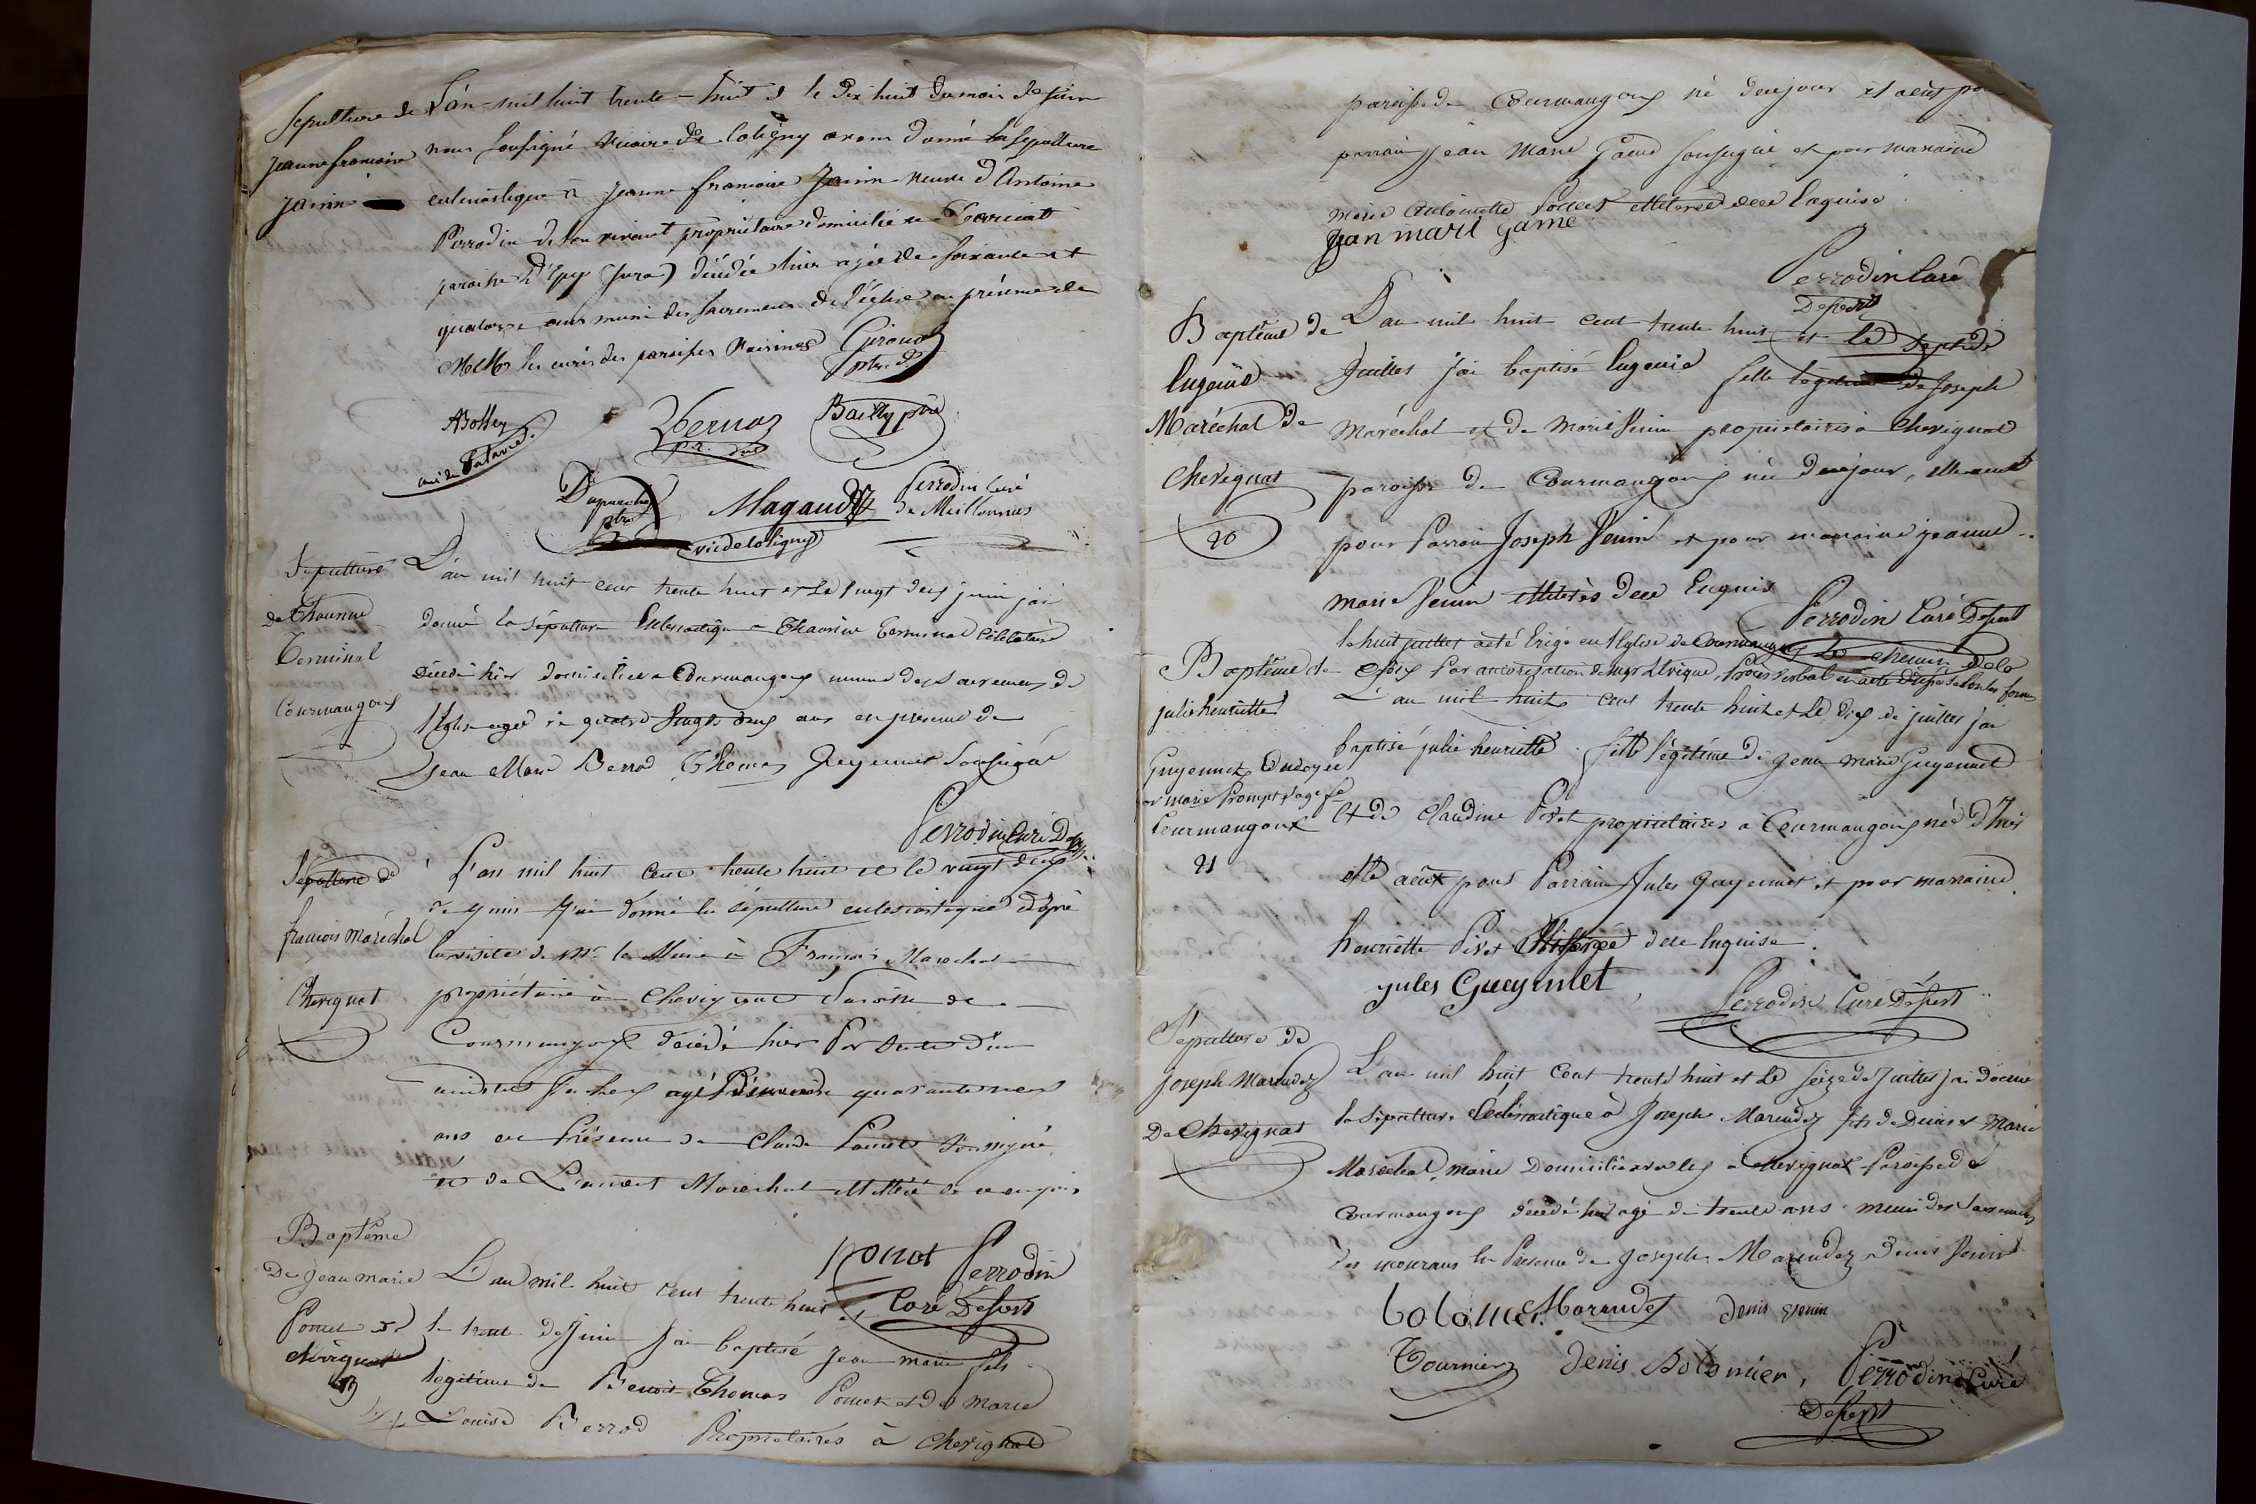 Sepulture de
jeanne francoise
Janin
L'an mil huit trente-huit & le dix huit du mois de juin
nous soussigné vicaire de Coligny avons donné la sepulture
ecclesiastique à jeanne francoise Janin veuve d'Antoine
Perrodin de son vivant propriétaire domicilié a
paroisse D'Epy (Jura) décédée hier agée de soixante et
quatorze ans muni des sacremens de l'église en présence de
MM les curés des paroisses voisines Giroud
ptre
Vernoz
Bailly ptre
ptre
Magaud
vic de Coligny
Perrodin Curé
de Meillonnas
Sepulture
de
Terminal
Courmangoux
L'an mil huit cent trente huit et le vingt deux juin j'ai
donné la sépulture Eclesiastique a Terminal célibataire
décédé hier domiciliée a Courmangoux munie des sacremens de
l'Eglise agée de quatre vingts deux ans en presence de
Jean Marie Berrod Thomas Guyennet soussigné
Perrodin Curé Dess
Sepulture de
francois maréchal
Chevignat
L'an mil huit cent trente huit et le vingt deux
de juin j'ai donné la sépulture eclesiastique d'après
la visite de Mr le Maire à François Marechal
propriétaire à Chevignat Paroisse de
Courmangoux décédé hier Par suite d'un
agé quarante neuf
ans en Présence de Claude Poncet soussigné
et de Marechal Illiteré de ce enquis
Poncet Perrodin
Curé Dess
Baptême
De jean marie
Poncet
chevignat
L'an mil huit cent trente huit et
le trente de juin j'ai baptisé jean marie fils
legitime de Benoit Thomas Poncet et de marie
Louise Berrod Propriétaires à Chevignat
paroisse de Courmangoux né de ce jour il a eut pr
parrain jean marie Game soussigné et pour maraine
marie Antoinette Poncet illiterée de ce enquise
Jean marie Game
Perrodin Curé
Baptême de
Eugenie
Maréchal de
Chevignat
20
L'an mil huit cent trente huit et le sept de
Juillet j'ai baptisé Eugenie fille légitime de Joseph
Maréchal et de Marie Venin propriétaires à Chevignat
paroisse de Courmangoux née de ce jour, elle a eut
pour Parrain Joseph Venin et pour marraine jeanne
marie Venin illiterés de ce Enquis
Perrodin Curé
le huit juillet a été Erigé en l'Eglise de Courmangoux Le chemin de la
Croix Par autorisation de mgr L'Evêque, Procès verbal en a été
Baptême de
julie henriette
Guyennet Ondoyée
Courmangoux
21
L'an mil huit cent trente huit et le dix de juillet j'ai
baptisé julie henriette fille légitime de jean marie Guyennet
et de Claudine Pivet propriétaires a Courmangoux né d'hier
elle a eut pour Parrain Jules Guyennet et pour marraine
henriette Pivet illiterée de ce Enquise
jules Gueynnet
Perrodin Curé
Sépulture de
joseph Marendez
De Chevignat
L'an mil huit cent trente huit et le seize de Juillet j'ai donné
la sépulture Ecclésiastique à Joseph Marendez fils de Denis et Marie
Maréchal, marié Domicilié a Chevignat Paroisse de
Courmangoux décédé hier agé de trente ans muni des sacremens
des mourans En Présence de joseph Marendez Denis Venin
Bolomier Marendez denis venin
Tournier denis Bolomier, Perrodin Curé